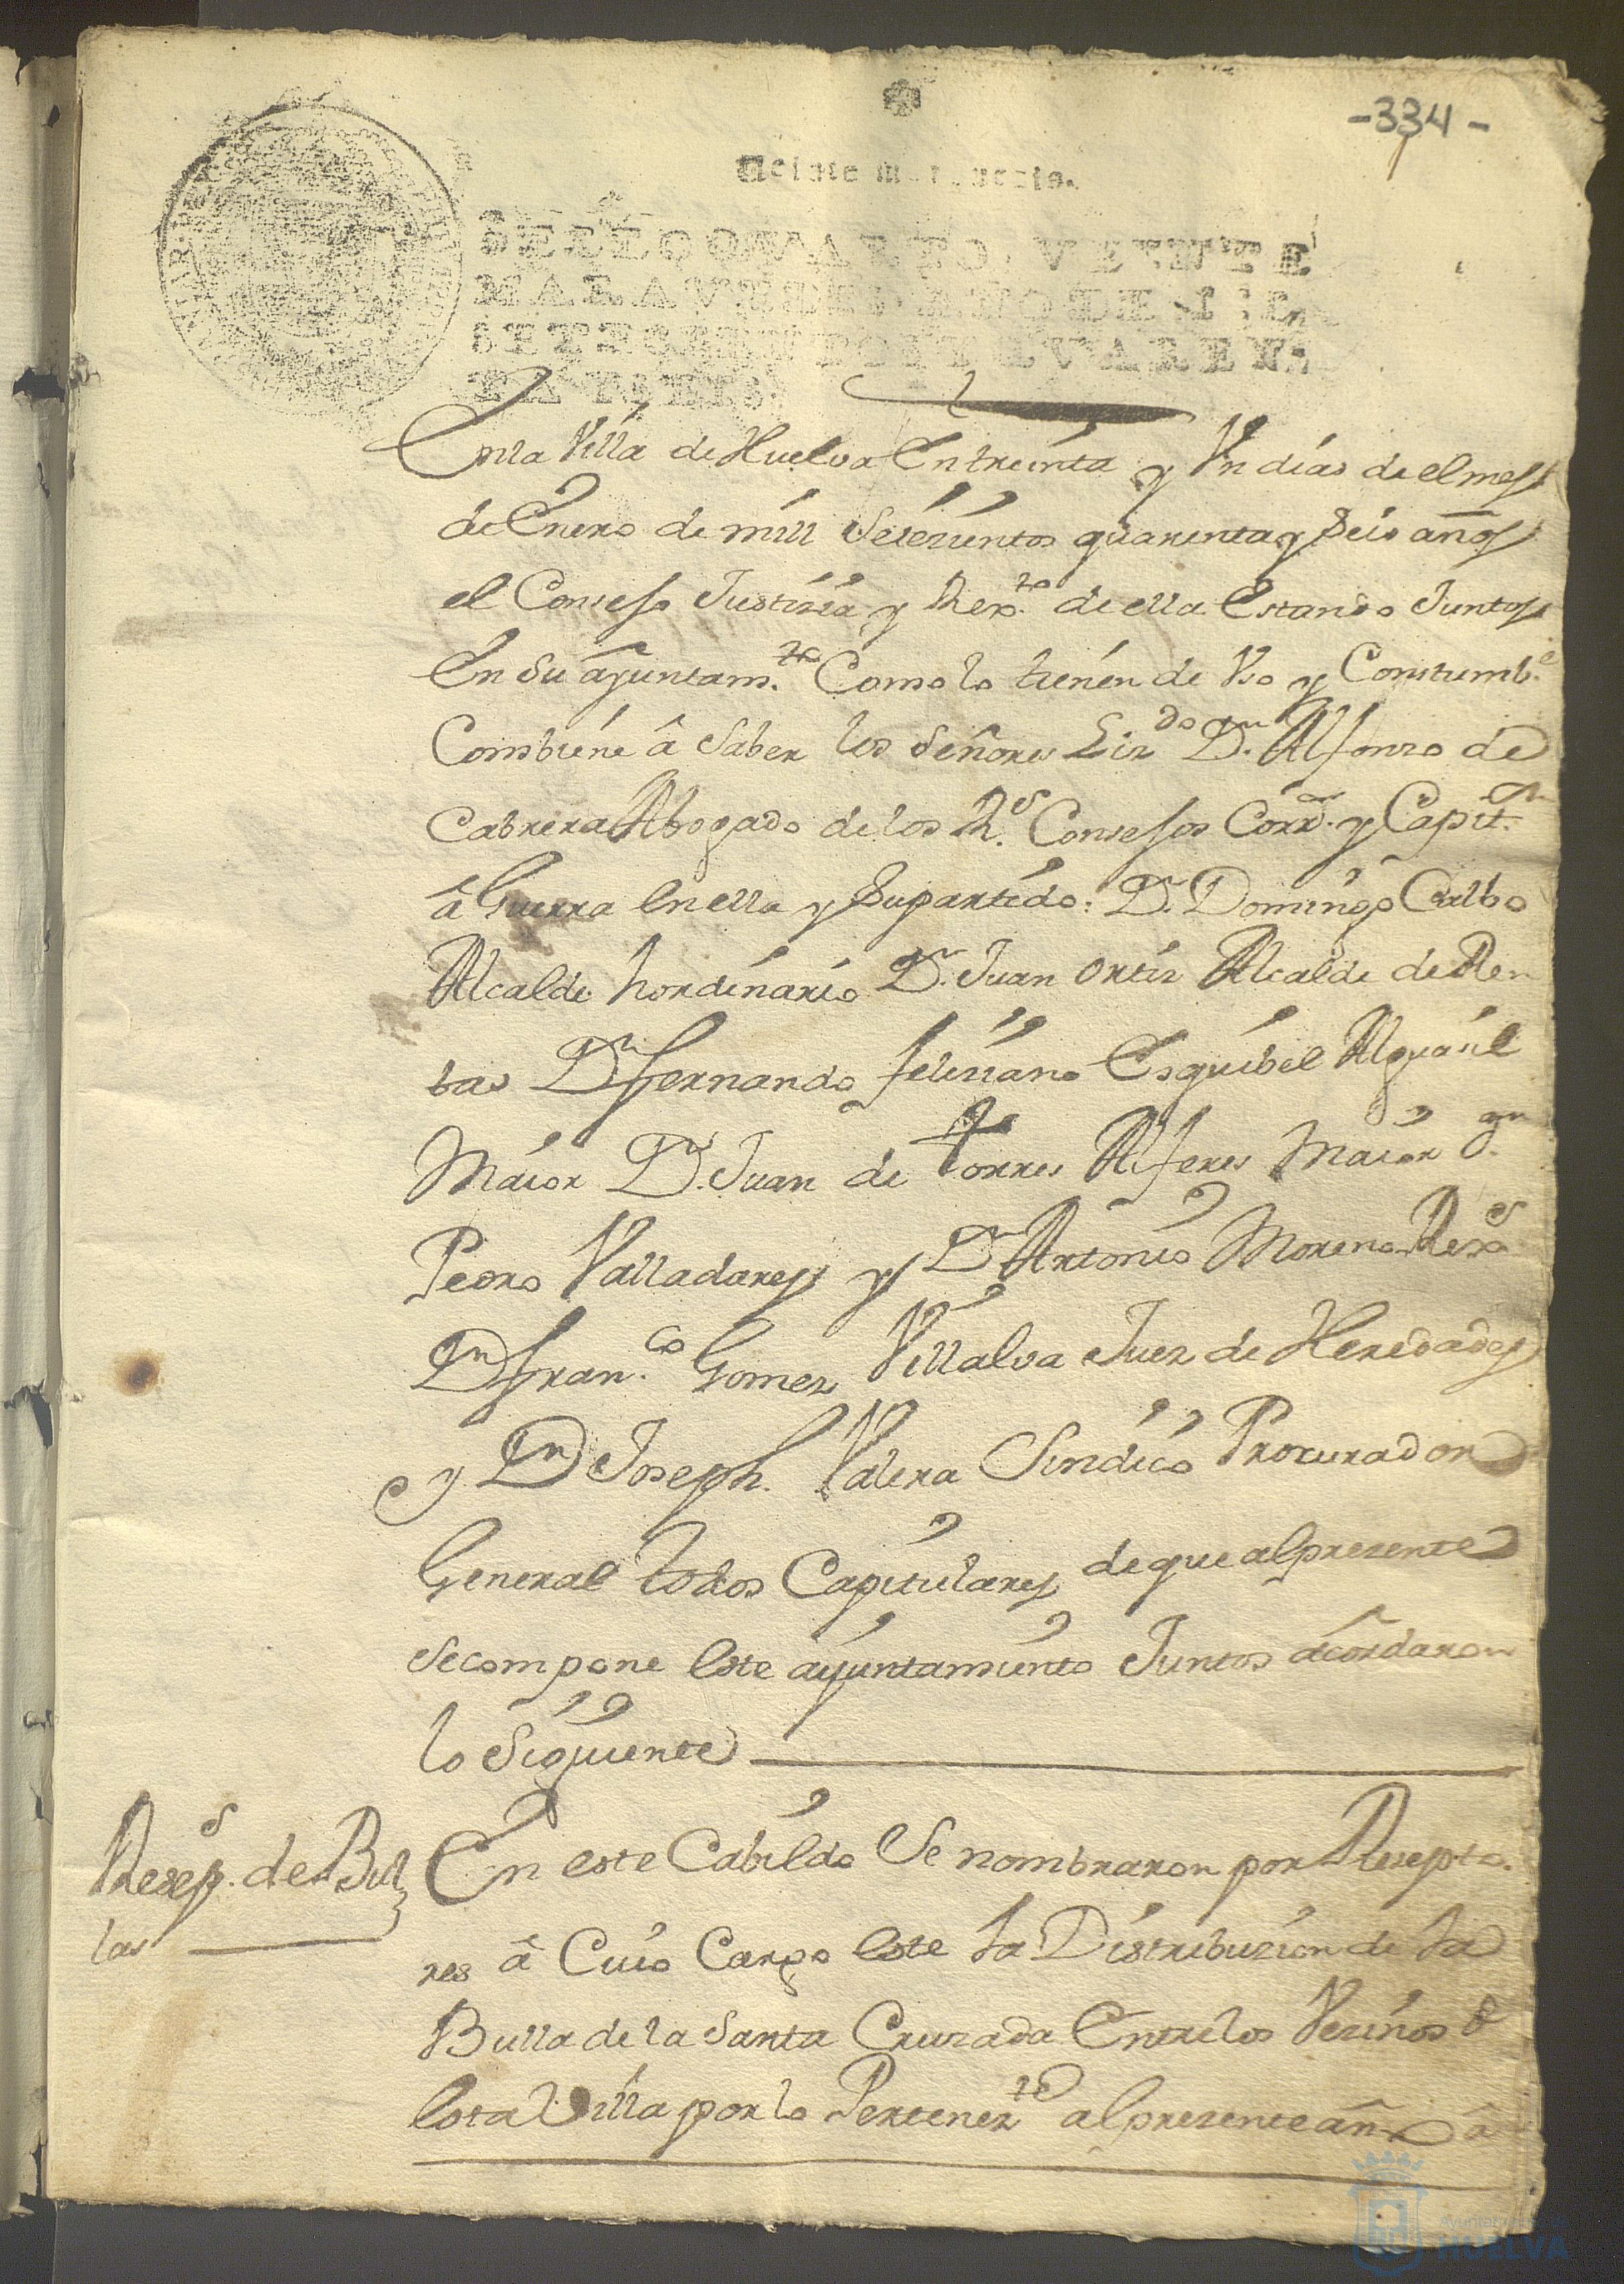 -334-
Veinte maravedis.
SELLO QVARTO, VEINTE
MARAVEDIS, AÑO DE MIL
SETECIENTOS Y QVAREN-
TA Y SEIS.
En la Villa de Huelva En treinta y Un dias de el mes
de Enero de mill Setezientos quarenta y Seis años
el Consejo Justizia y Rex.to de ella Estando Juntos
En Su ayuntam.to Como lo tienen de Uso y Constumb.e
Combiene â Saber los Señores Liz.do D.n Alfonzo de
Cabrera Abogado de los R.s Consejos Corr.r y Capit.n
â Guerra En ella y Su partido: D.n Domingo Calbo
Alcalde hordinario D.n Juan Ortiz Alcalde de Ren
tas D.n fernando feliziano Esquibel Alguazil
Maior D.n Juan de Torres Alferes Maior D.n
Pedro Valladares y D.n Antonio Moreno Rex.s
D.n fran.co Gomez Villalva Juez de Heredades
y D.n Joseph Valera Sindico Procurador
General todos Capitulares de que al presente
Se compone Este ayuntamiento Juntos acordaron
lo Siguiente
Resep.s de Bul
las
En este Cabildo Se nombraron por Resepto
res â Cuio Cargo Este la Distribuzion de la
Bulla de la Santa Cruzada Entre los Vezinos de
Esta Villa por lo Pertenez.te al presente año â
Ayuntamiento de
HUELVA